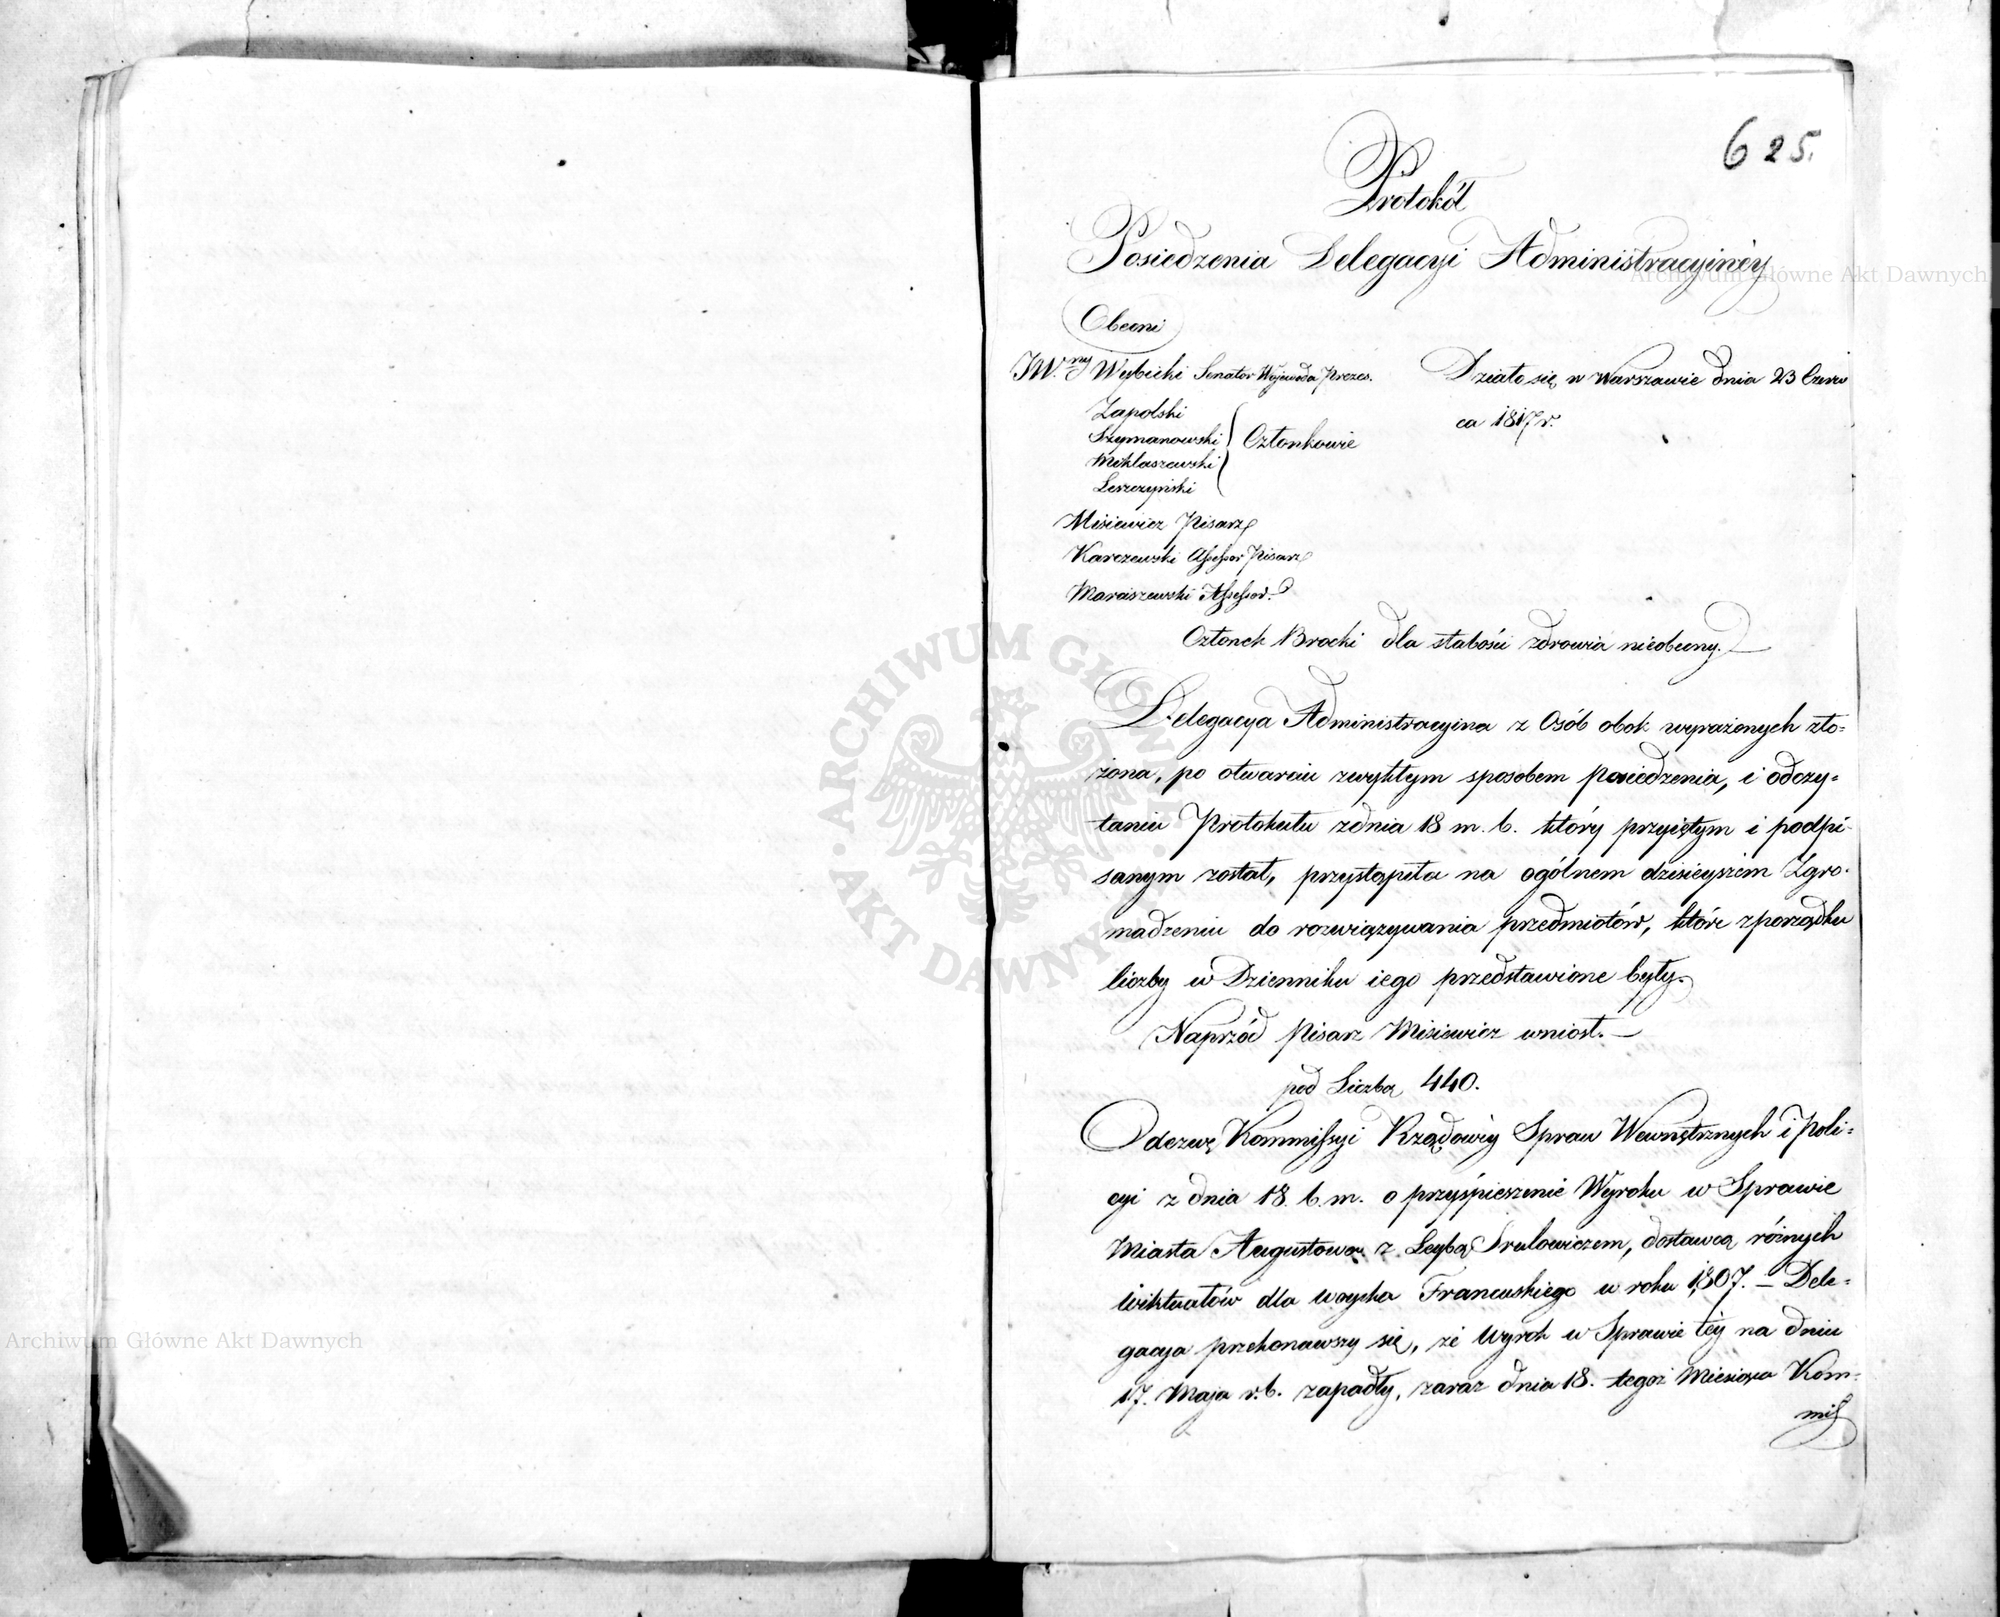 625.
Protokół
Posiedzenia Delegacyi Administracyinéy
Obecni
JW.ny Wybicki Senator Wojewoda Prezes.
Działo się w Warszawie dnia 23 Czerw
ca 1817 r.
Zapolski
Szymanowski
Członkowie
Miklaszewski
Leszczyński
Misiewicz Pisarz
Karczewski Assessor Pisarz
Maraiszewski Assessor.
Członek Brocki dla słabości zdrowia nieobecny.
Delegacya Administracyina z Osób obok wyrażonych zło=
żona, po otwarciu zwykłym sposobem posiedzenia, i odczy=
taniu Protokułu z dnia 18 m. b. który przyiętym i podpi=
sanym został, przystąpiła na ogólnem dzisieyszem Zgro=
madzeniu do rozwiązywania przedmiotów, które z porządku
liczby w Dzienniku iego przedstawione były.
Naprzód Pisarz Misiewicz wniosł. —
pod Liczbą 440.
Odezwę Kommissyi Rządowéy Spraw Wewnętrznych i Poli=
cyi z dnia 18. b. m. o przyśpieszenie Wyroku w Sprawie
Miasta Augustowa z Leybą Srulowiczem, dostawcą różnych
wiktuałów dla woyska Francuskiego w roku 1807. — Dele=
gacya przekonawszy się, że Wyrok w Sprawie téy na dniu
17. Maja r. b. zapadły, zaraz dnia 18. tegoż Miesiąca Kom=
miss
Archiwum Główne Akt Dawnych
Archiwum Główne Akt Dawnych
ARCHIWUM GŁÓWNE · AKT DAWNYCH ·